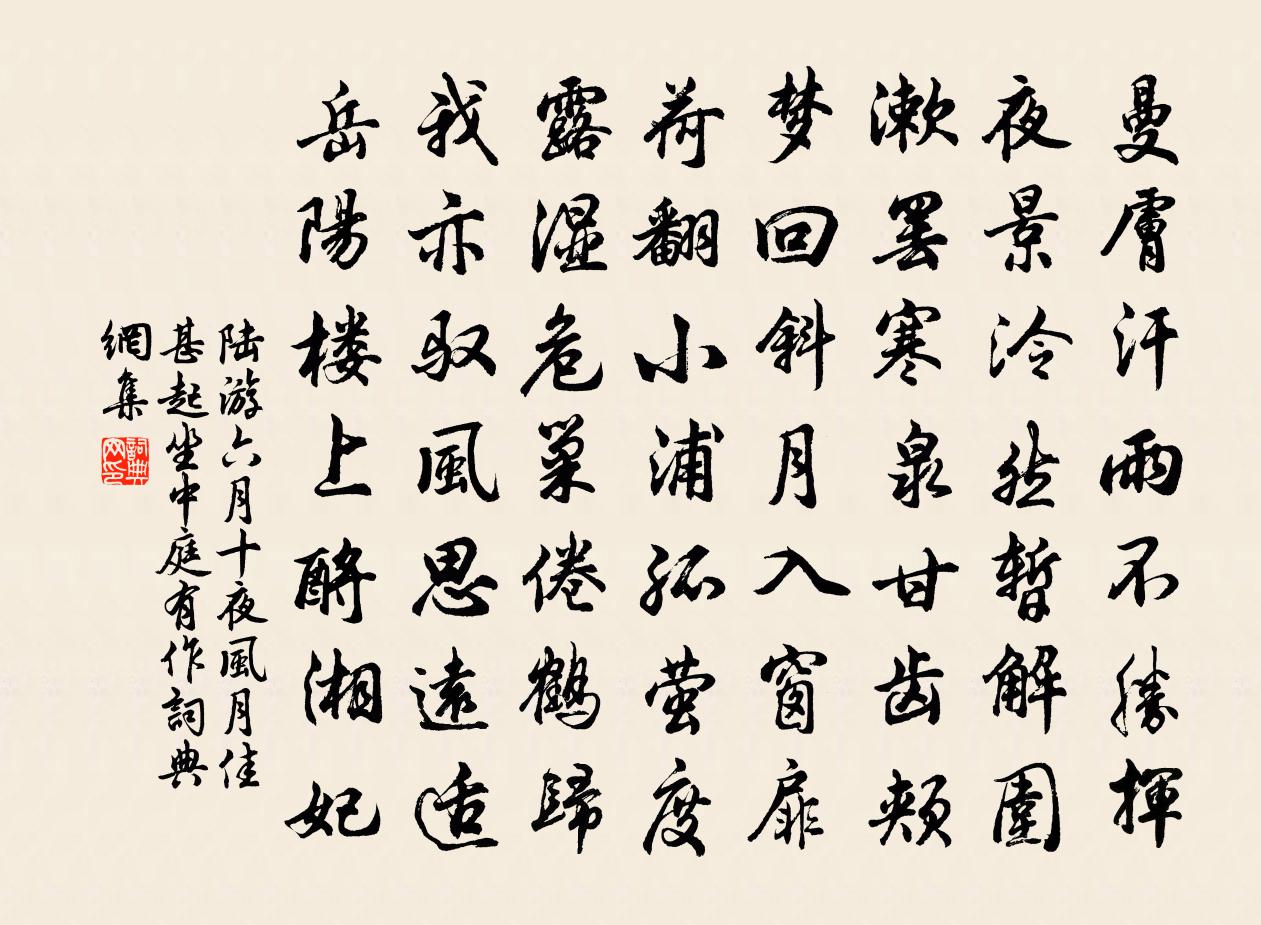 曼膚汗雨不勝揮
夜景泠然暫解圍
漱罢寒泉甘齿颊
梦回斜月入窗扉
荷翻小浦孤萤度
露湿危巢倦鶴歸
我亦驭風思遠适
岳陽楼上酹湘妃
陆游六月十夜風月佳
甚起坐中庭有作詞典
網集
詞典网印